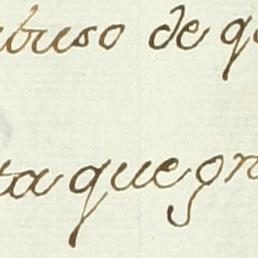 abuso de q
ta que gn